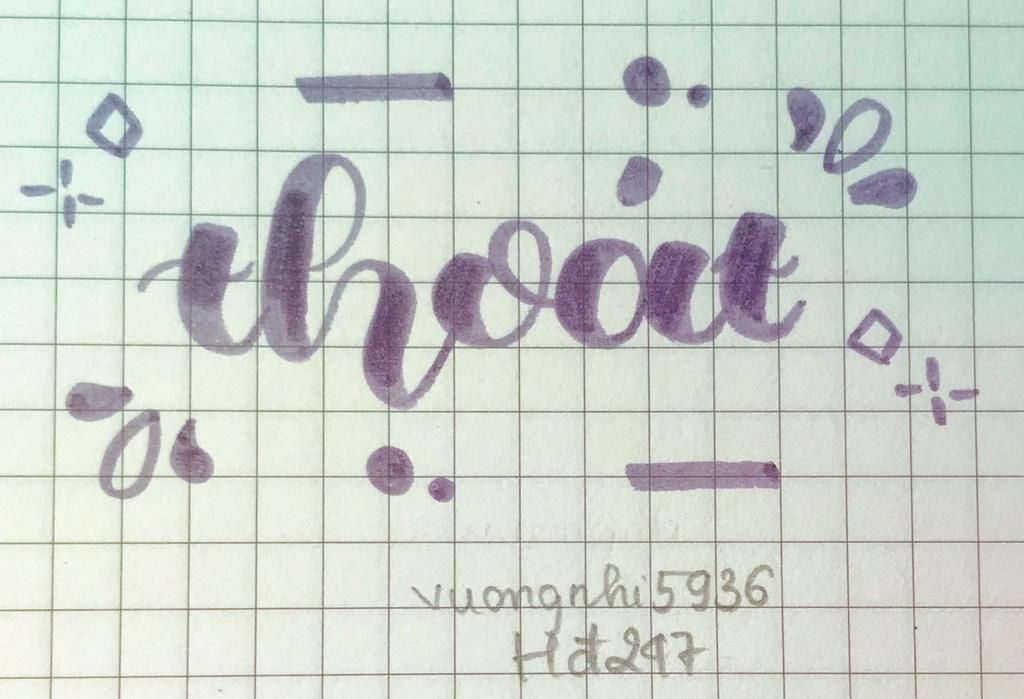 thoát
vuongnhi5936
Hđ247